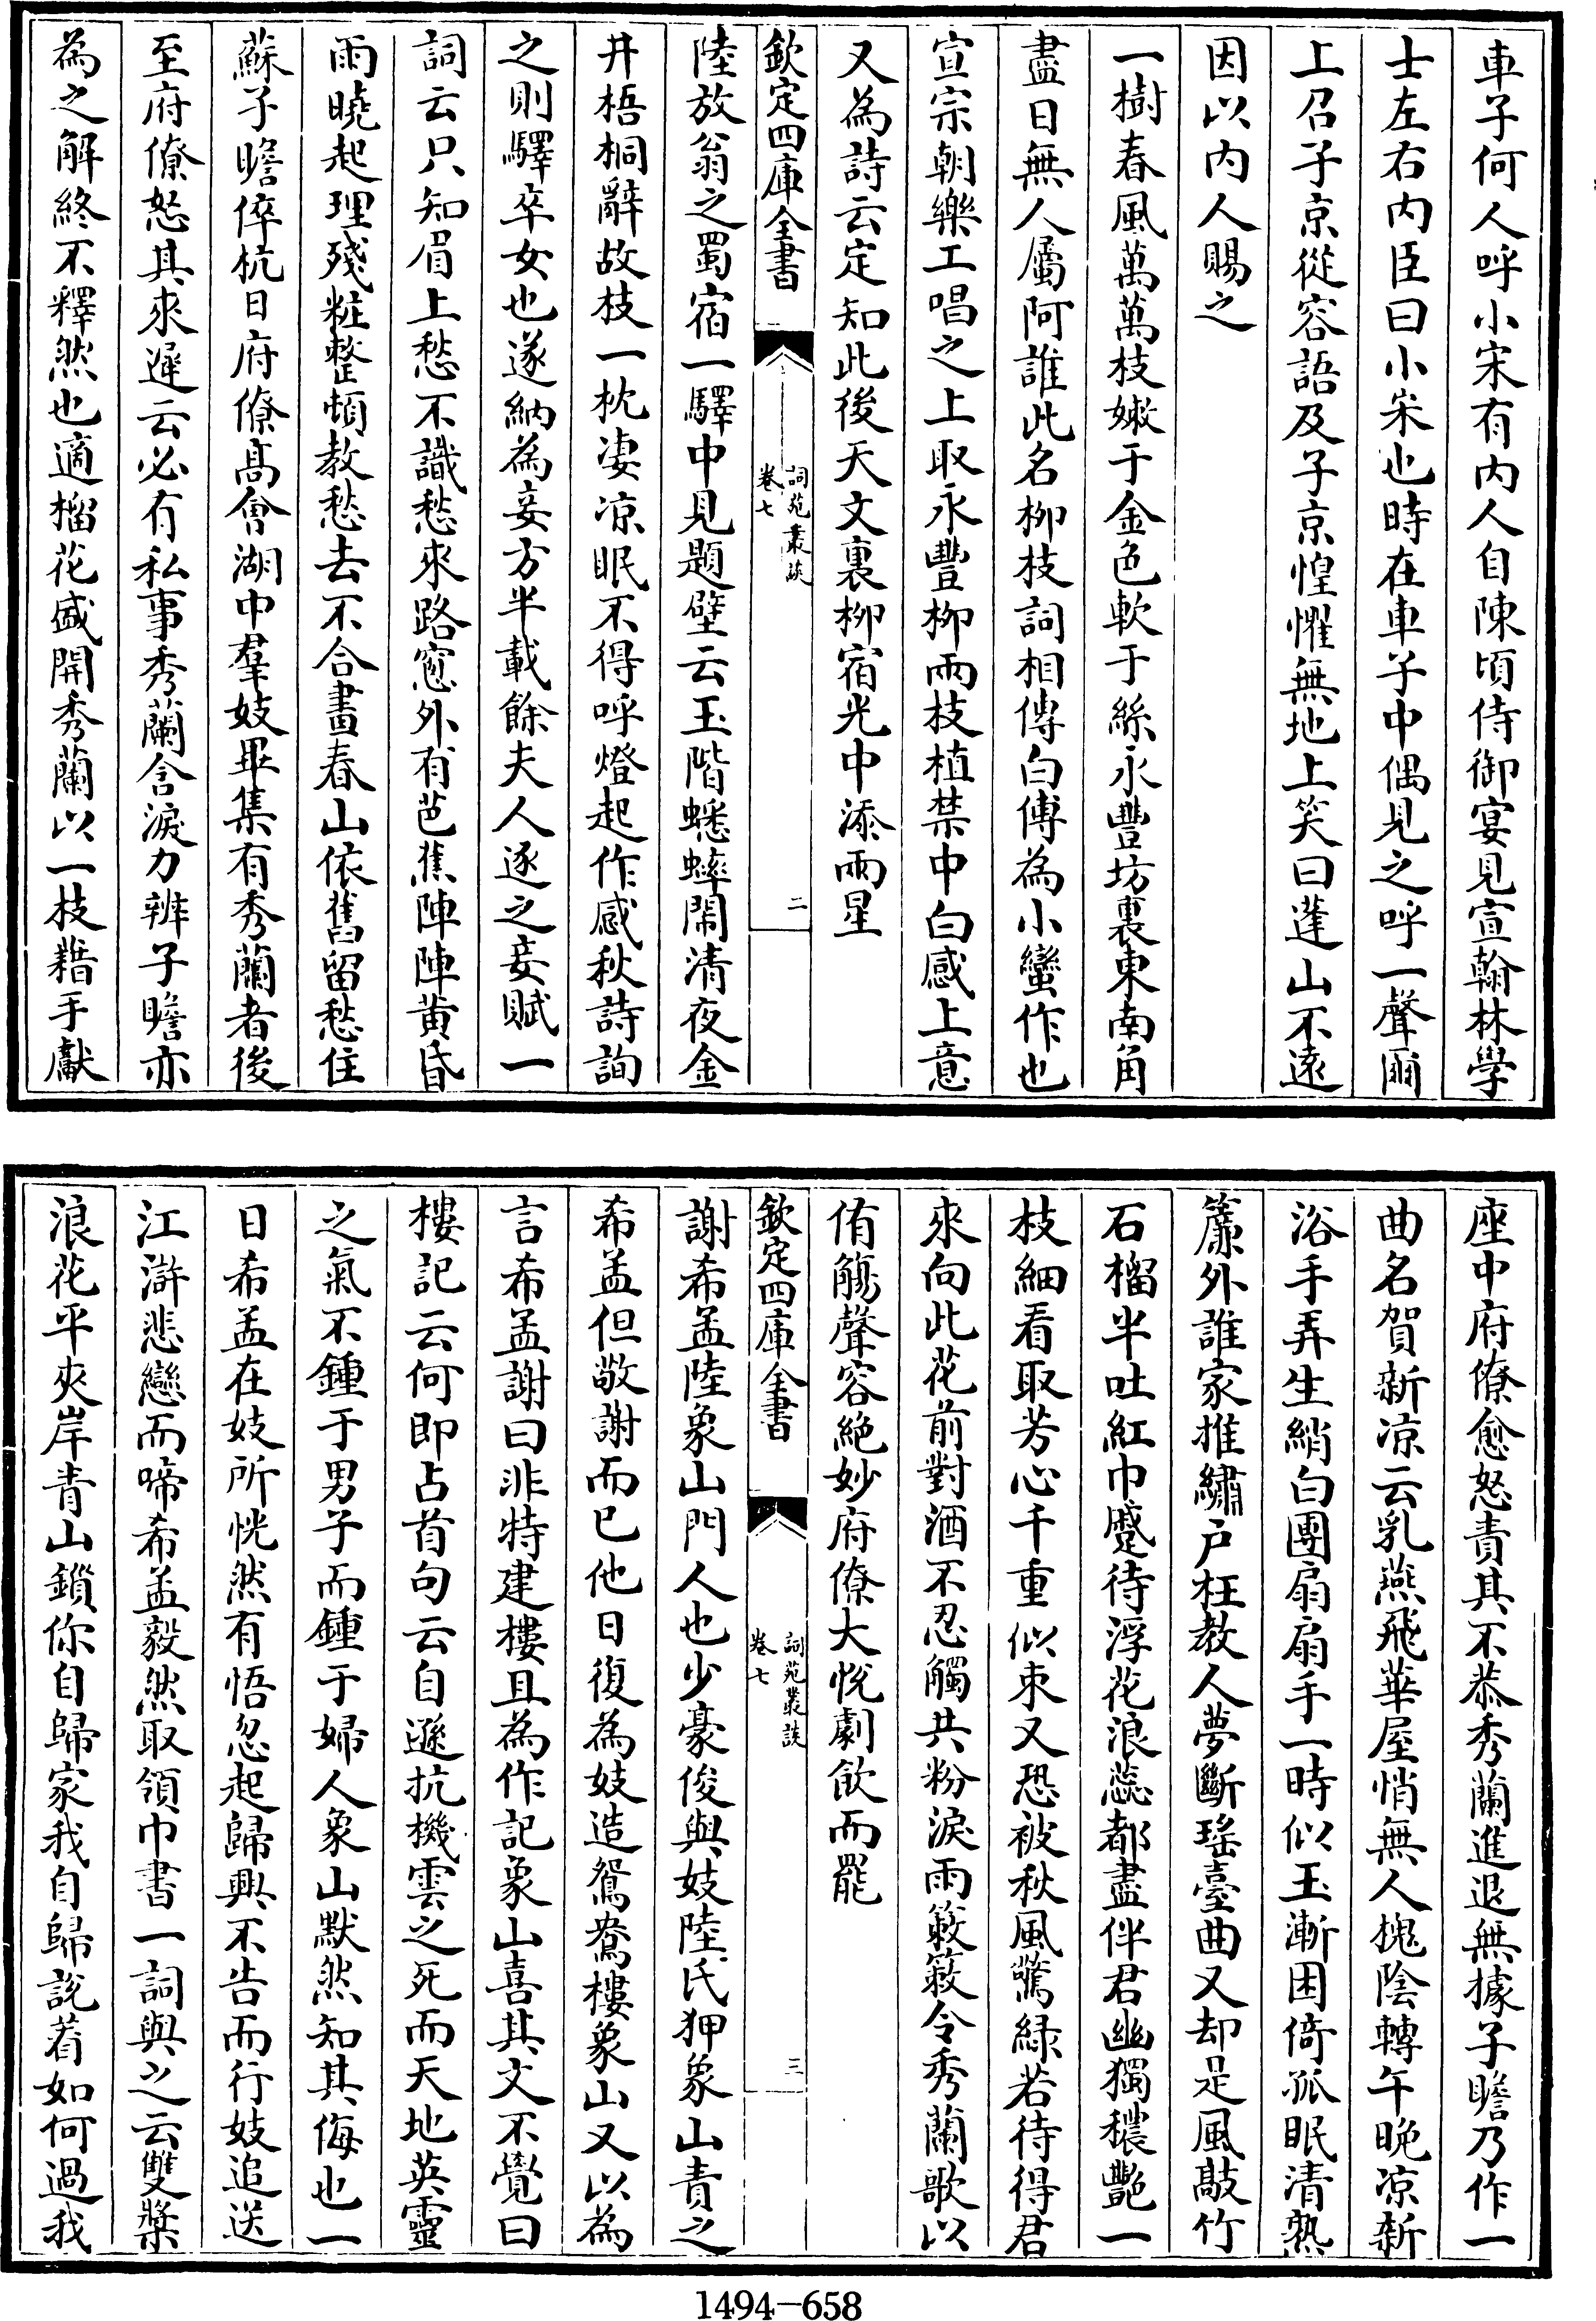 車子何人呼小宋有内人自陳頃侍御宴見宣翰林學
士左右内臣曰小宋也時在車子中偶見之呼一聲爾
上召子京從容語及子京惶懼無地上笑曰蓬山不逺
因以内人賜之
一樹春風萬萬枝嫩于金色軟于絲永豐坊裏東南角
盡日無人屬阿誰此名柳枝詞相傳白傅為小蠻作也
宣宗朝樂工唱之上取永豐柳兩枝植禁中白感上意
又為詩云定知此後天文裏柳宿光中添兩星
欽定四庫全書
詞苑叢談
卷七
二
陸放翁之蜀宿一驛中見題壁云玉階蟋蟀閙清夜金
井梧桐辭故枝一枕凄凉眠不得呼燈起作感秋詩詢
之則驛卒女也遂納為妾方半載餘夫人逐之妾賦一
詞云只知眉上愁不識愁來路窓外有芭蕉陣陣黄昏
雨曉起理殘粧整頓教愁去不合畫春山依舊留愁住
蘇子瞻倅杭日府僚髙會湖中羣妓畢集有秀蘭者後
至府僚怒其來遲云必有私事秀蘭含淚力辨子瞻亦
為之解終不釋然也適榴花盛開秀蘭以一枝藉手獻
座中府僚愈怒責其不恭秀蘭進退無據子瞻乃作一
曲名賀新凉云乳燕飛華屋悄無人槐陰轉午晚凉新
浴手弄生綃白團扇扇手一時似玉漸困倚孤眠清熟
簾外誰家推繡户枉教人夢斷瑶臺曲又却是風敲竹
石榴半吐紅巾蹙待浮花浪蕊都盡伴君幽獨穠艷一
枝細看取芳心千重似束又恐被秋風驚緑若待得君
來向此花前對酒不忍觸共粉淚兩簌簌令秀蘭歌以
侑觴聲容絶妙府僚大悦劇飲而罷
欽定四庫全書
詞苑叢談
卷七
三
謝希孟陸象山門人也少豪俊與妓陸氏狎象山責之
希孟但敬謝而已他日復為妓造鴛鴦樓象山又以為
言希孟謝曰非特建樓且為作記象山喜其文不覺曰
樓記云何即占首句云自遜抗機雲之死而天地英靈
之氣不鍾于男子而鍾于婦人象山默然知其侮也一
日希孟在妓所恍然有悟忽起歸興不告而行妓追送
江滸悲戀而啼希孟毅然取領巾書一詞與之云雙槳
浪花平夾岸青山鎖你自歸家我自歸說着如何過我
1494—658